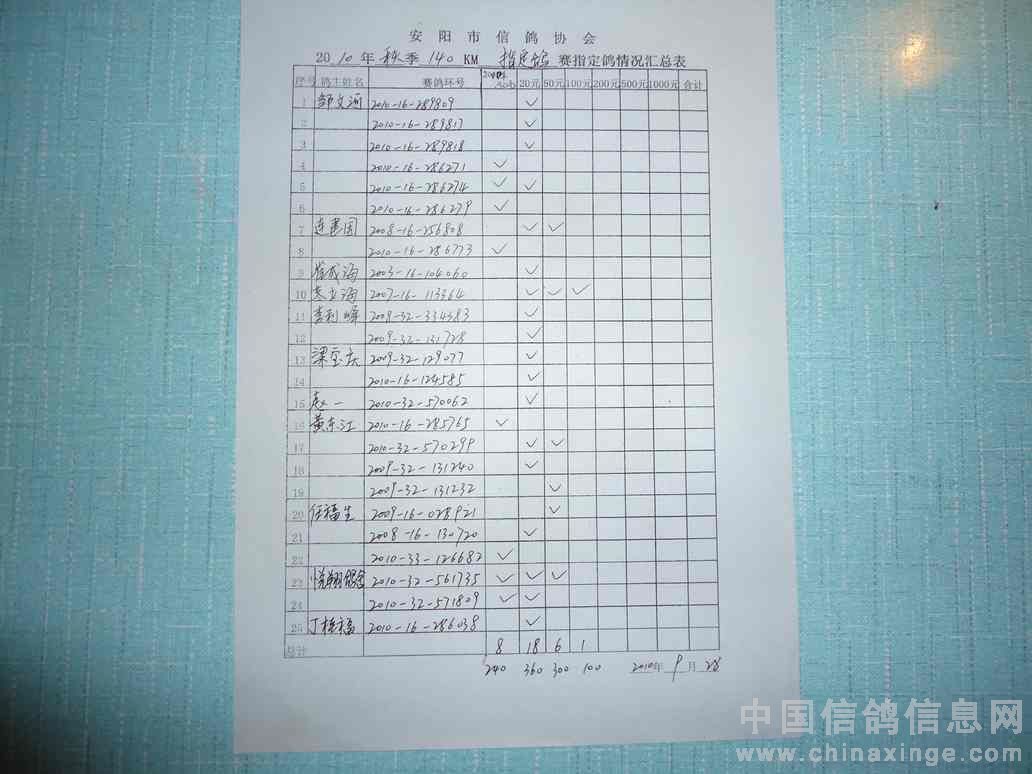 安阳市信鸽协会
2010年秋季140KM 指定鸽 赛指定鸽情况汇总表
序号 鸽主姓名 赛鸽环号 20元 50元 100元 200元 500元 1000元 合计
1 郭文河 2010-16-289809 ✓
2 2010-16-289817 ✓
3 2010-16-289818 ✓
4 2010-16-286271 ✓
5 2010-16-286274 ✓ ✓
6 2010-16-286279 ✓
7 连惠国 2008-16-256808 ✓ ✓
8 2010-16-286773 ✓
9 2003-16-104060 ✓
10 2007-16-113364 ✓ ✓ ✓
11 李利峰 2008-32-334383 ✓
12 2009-32-131728 ✓
13 梁宝庆 2009-32-129077 ✓
14 2010-16-124585 ✓
15 赵一 2010-32-570062 ✓
16 黄东江 2010-16-285765 ✓
17 2010-32-570299 ✓ ✓
18 2009-32-131240 ✓
19 2009-32-131232 ✓
20 任福生 2009-16-028921 ✓
21 2008-16-130720 ✓
22 2010-33-126682 ✓
23 悦翔鸽舍 2010-32-561735 ✓ ✓ ✓
24 2010-32-571809 ✓ ✓
25 丁桂福 2010-16-286038 ✓
总计 8 18 6 1
240 360 300 100 2010年9月28
中国信鸽信息网
www.chinaxinge.com